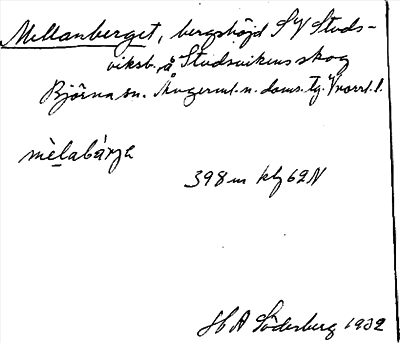 Mellanberget, bergshöjd SV Studs-
viksb. å Studsvikens skog
Björna sn. Ångerml. n. doms. tg. V norrl. l.
mèlabárʒə
398 m kbl 62N
H A Söderberg 1932